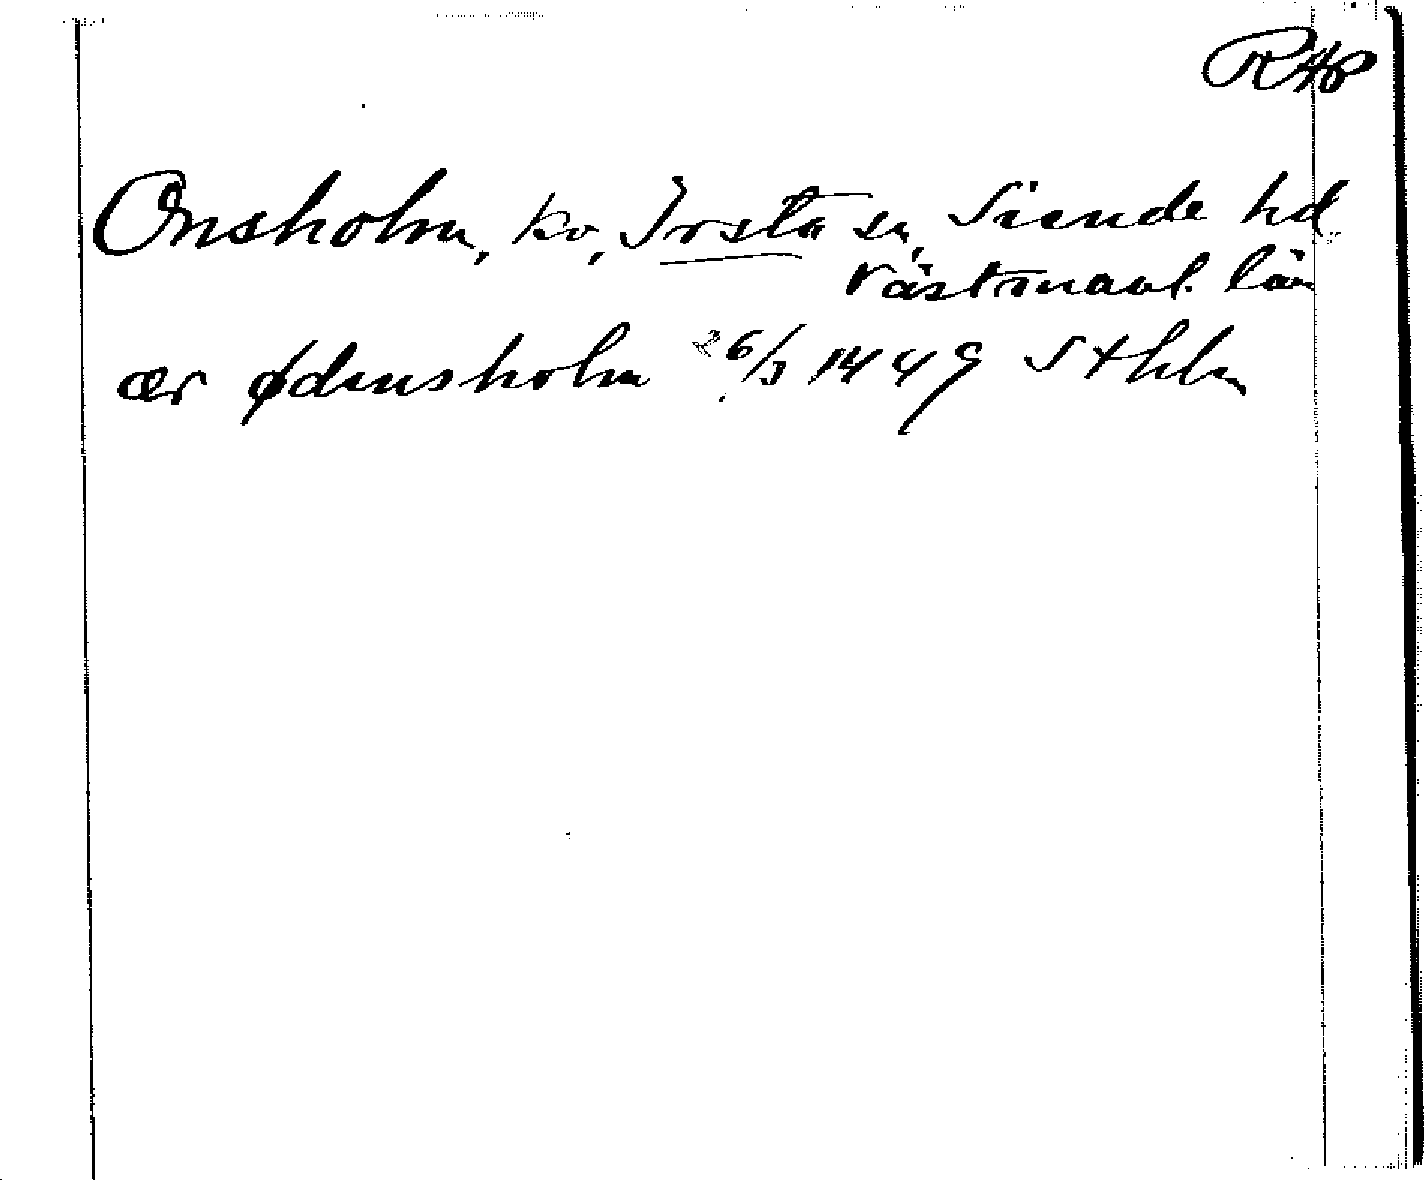 RAp
Onsholm, kv, Irsta sn, Siende hd
Västmanl. län
ær ødensholm 26/3 1449 Sthlm